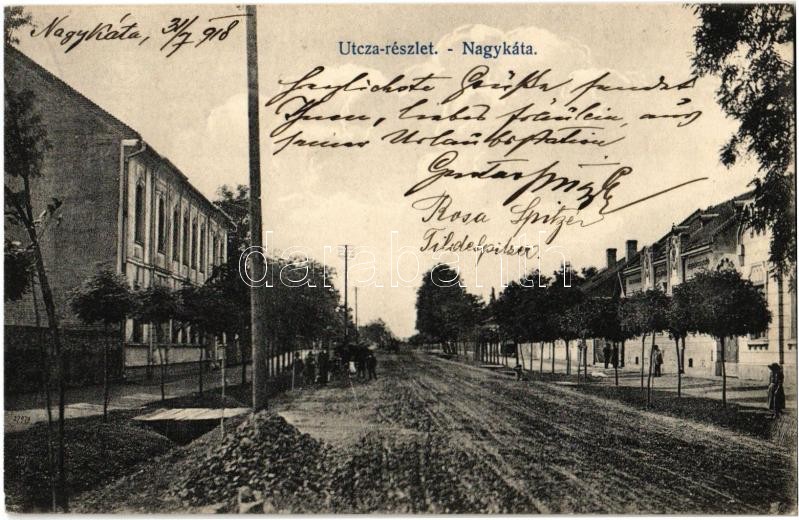 Nagykáta, 31/7 918
Utcza-részlet. - Nagykáta.
Herzlichste Grüße sendet
Ihnen, liebes Fräulein, aus
seiner Urlaubstation
Gustav
Rosa Spitzer
Tilde Spitzer
darabanth